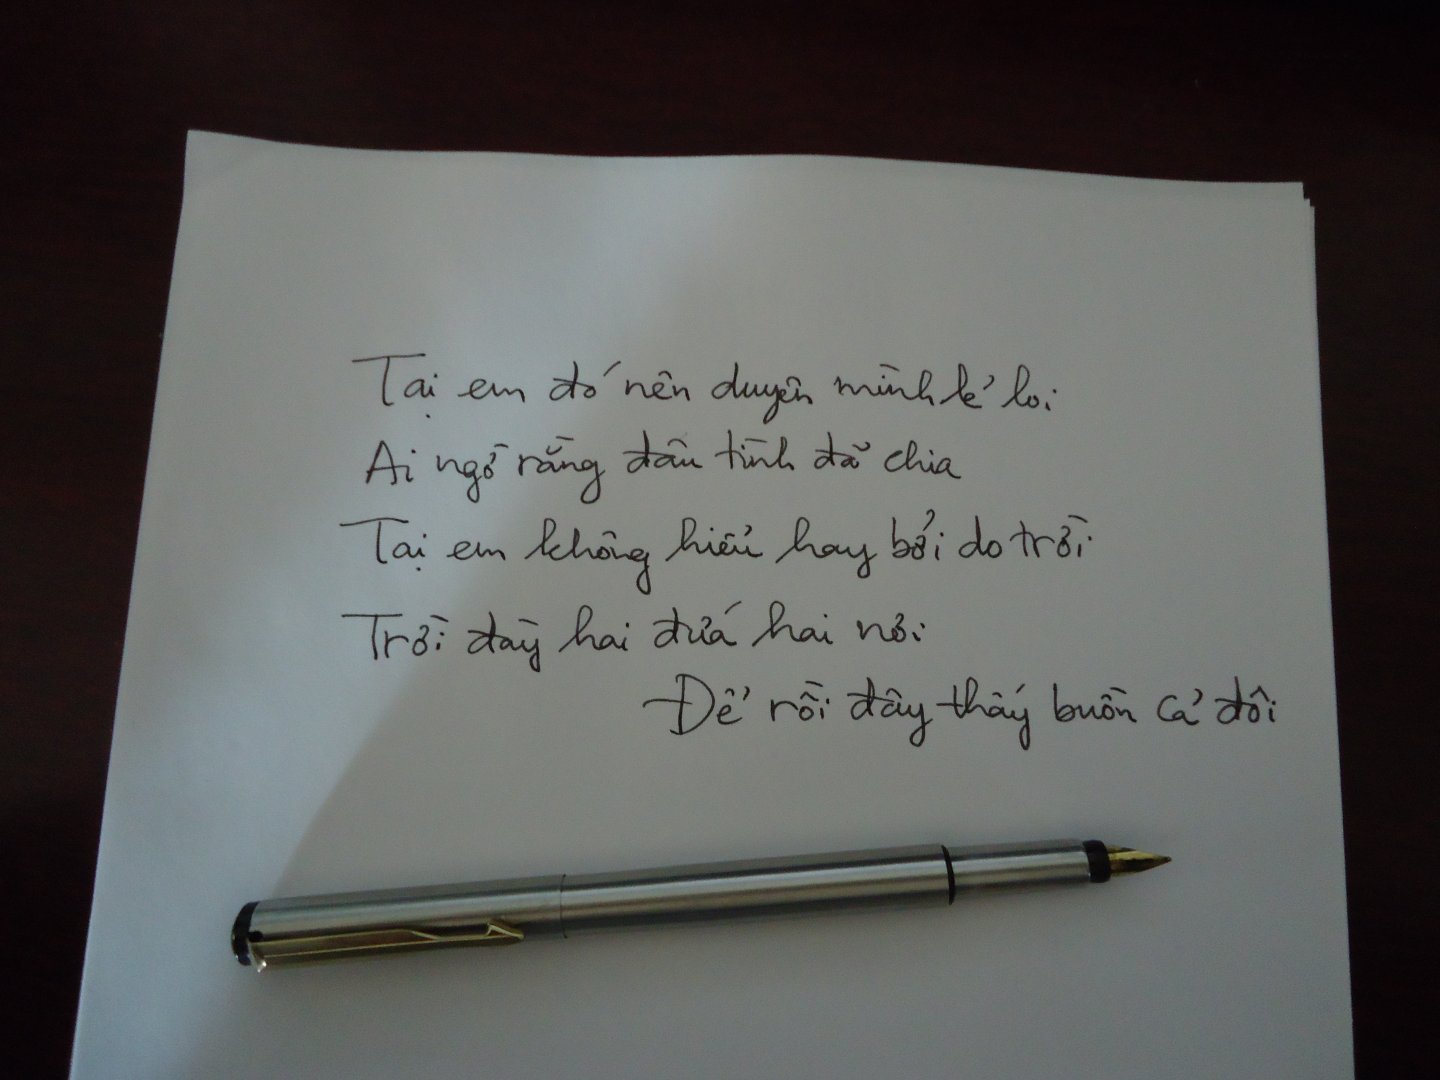 Tại em đó nên duyên mình lẻ loi
Ai ngờ rằng đâu tình đã chia
Tại em không hiểu hay bởi do trời
Trời đày hai đứa hai nơi
Để rồi đây thấy buồn cả đôi